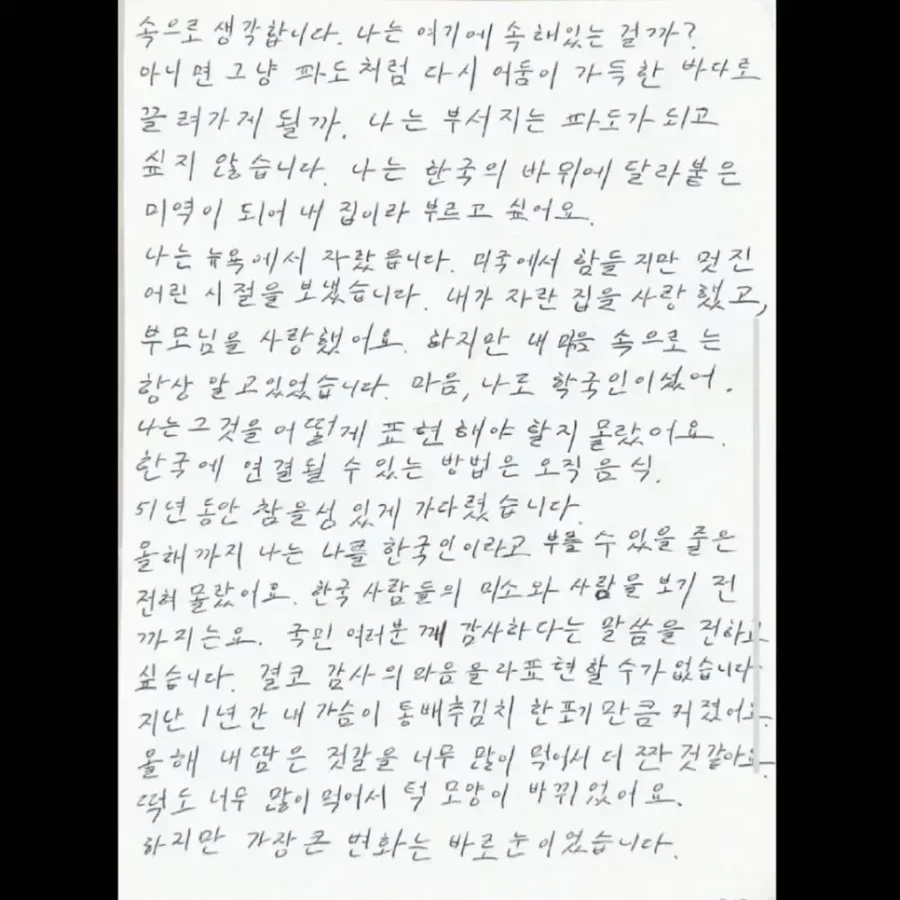 속으로 생각합니다. 나는 여기에 속해있는 걸까?
아니면 그냥 파도처럼 다시 어둠이 가득한 바다로
끌려가게 될까. 나는 부서지는 파도가 되고
싶지 않습니다. 나는 한국의 바위에 달라붙은
미역이 되어 내 집이라 부르고 싶어요.
나는 뉴욕에서 자랐읍니다. 미국에서 함들지만 멋진
어린 시절을 보냈습니다. 내가 자란 집을 사랑했고,
부모님을 사랑했어요. 하지만 내 마음 속으로는
항상 알고있었습니다. 마음, 나도 학국인이셨어.
나는 그것을 어떻게 표현해야 할지 몰랐어요.
한국에 연결될 수 있는 방법은 오직 음식.
51년 동안 참을성 있게 기다렸습니다.
올해까지 나는 나를 한국인이라고 부를 수 있을 줄은
전혀 몰랐어요. 한국 사람들의 미소와 사람을 보기 전
까지는요. 국민 여러분께 감사하다는 말씀을 전하고
싶습니다. 결코 감사의 마음을 다표현할 수가 없습니다.
지난 1년간 내 가슴이 통배추김치 한포기만큼 커졌어요.
올해 내땀은 젓갈을 너무 많이 먹어서 더 짠 것같아요.
떡도 너무 많이 먹어서 턱 모양이 바뀌었어요.
하지만 가장 큰 변화는 바로 눈이었습니다.